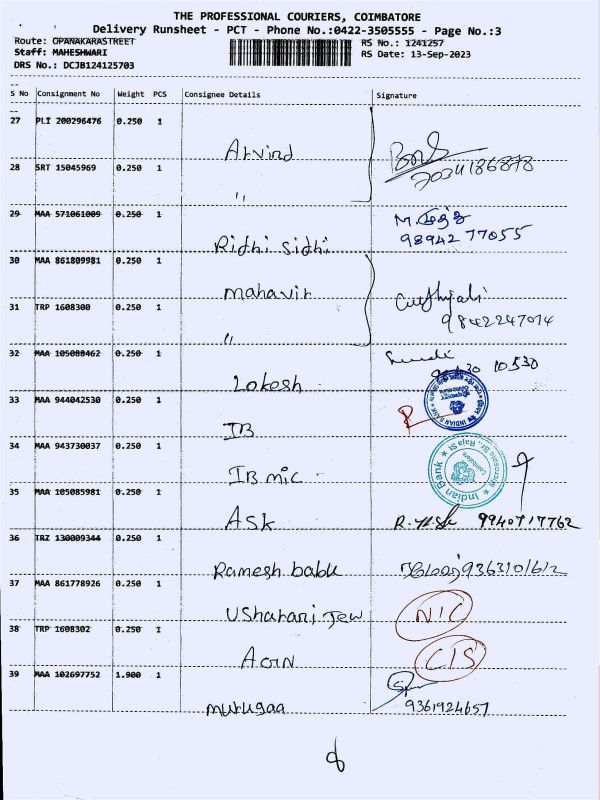 THE PROFESSIONAL COURIERS, COIMBATORE
Delivery Runsheet - PCT - Phone No.:0422-3505555 - Page No.:3
Route: OPANAKARASTREET RS No.: 1241257
Staff: MAHESHWARI RS Date: 13-Sep-2023
DRS No.: DCJB124125703
S No Consignment No Weight PCS Consignee Details Signature
27 PLI 200296476 0.250 1
Arvind
7034186878
28 SRT 15045969 0.250 1
"
29 MAA 571061009 0.250 1
Ridhi Sidhi
98942 77055
30 MAA 861809981 0.250 1
Mahavir
9842247014
31 TRP 1608300 0.250 1
"
32 MAA 105088462 0.250 1
Lokesh
10530
33 MAA 944042530 0.250 1
IB
INDIAN BANK
34 MAA 943730037 0.250 1
IB mic -
Indian Bank
35 MAA 105085981 0.250 1
ASK
9940717762
36 TRZ 130009344 0.250 1
Ramesh babu
9363101612
37 MAA 861778926 0.250 1
Ushahari Jew
NIC
38 TRP 1608302 0.250 1
CIS
39 MAA 102697752 1.900 1
murugaa
9361924657